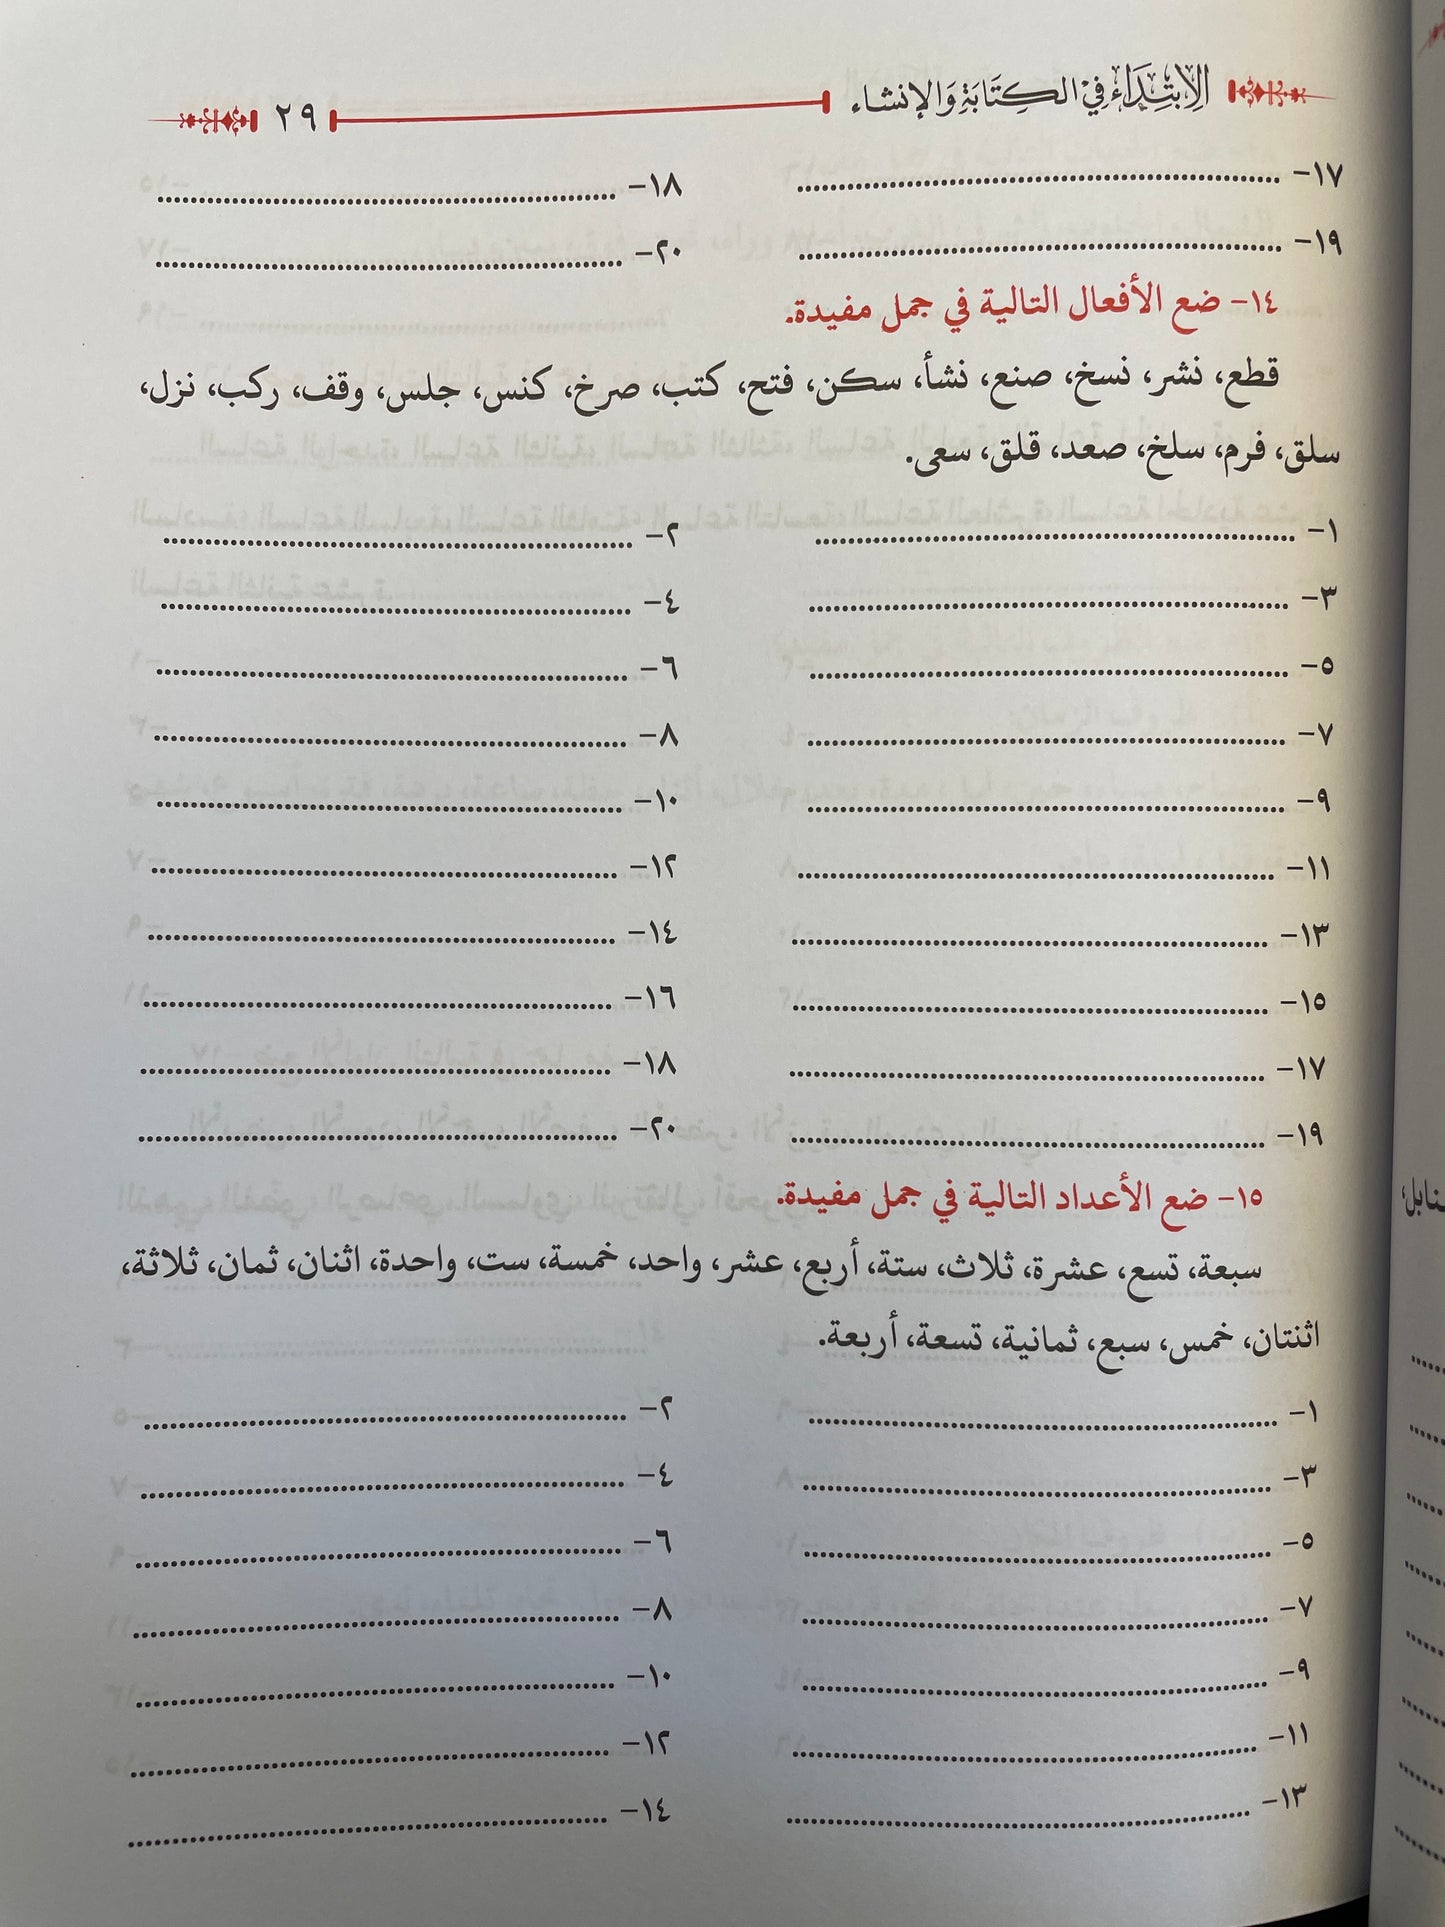 الابتداء في الكتابة والإنشاء ٢٩
١٧- ........ ١٨- ........
١٩- ........ ٢٠- ........
١٤- ضع الأفعال التالية في جمل مفيدة.
قطع، نشر، نسخ، صنع، نشأ، سكن، فتح، كتب، صرخ، كنس، جلس، وقف، ركب، نزل،
سلق، فرم، سلخ، صعد، قلق، سعى.
١- ........ ٢- ........
٣- ........ ٤- ........
٥- ........ ٦- ........
٧- ........ ٨- ........
٩- ........ ١٠- ........
١١- ........ ١٢- ........
١٣- ........ ١٤- ........
١٥- ........ ١٦- ........
١٧- ........ ١٨- ........
١٩- ........ ٢٠- ........
١٥- ضع الأعداد التالية في جمل مفيدة.
سبعة، تسع، عشرة، ثلاث، ستة، أربع، عشر، واحد، خمسة، ست، واحدة، اثنان، ثمان، ثلاثة،
اثنتان، خمس، سبع، ثمانية، تسعة، أربعة.
١- ........ ٢- ........
٣- ........ ٤- ........
٥- ........ ٦- ........
٧- ........ ٨- ........
٩- ........ ١٠- ........
١١- ........ ١٢- ........
١٣- ........ ١٤- ........